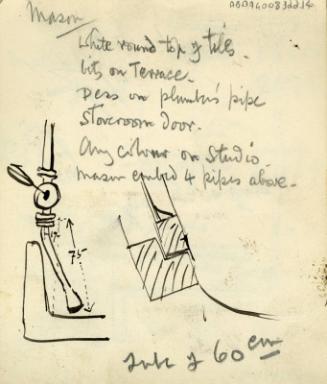 ABDAG008322.14
Mason
White round top of tiles.
bits on Terrace.
Dess on plumber's pipe
Storeroom Door.
Any colour on Studio.
Mason embed 4 pipes above.
75
tube of 60 cm